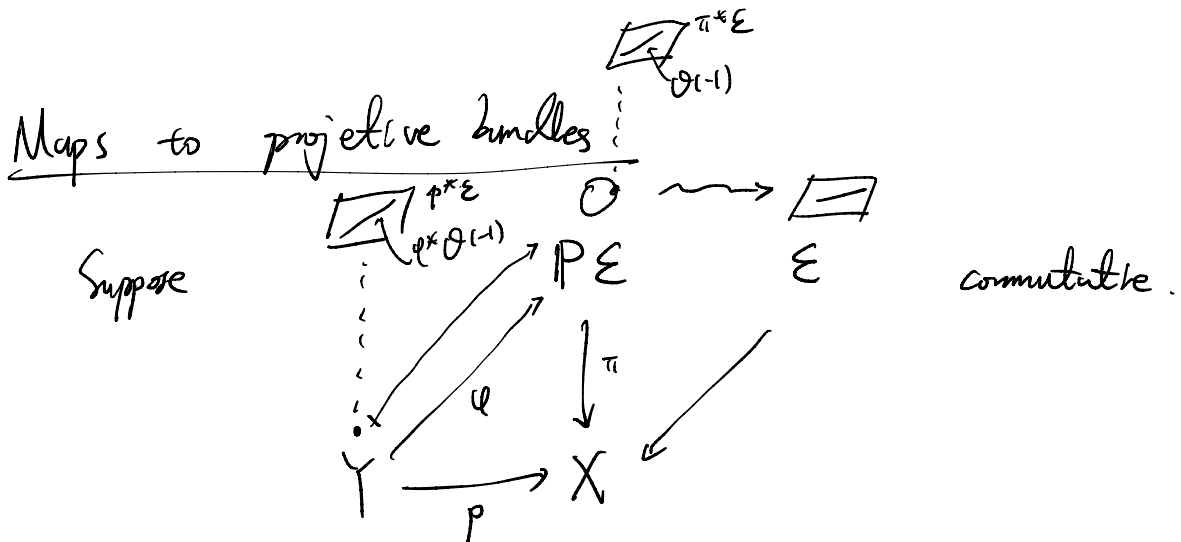 π*ℰ
𝒪(-1)
Maps to projetive bundles
p*ℰ
φ*𝒪(-1)
Suppose ℙℰ ℰ commutative.
π
φ
Y X
p